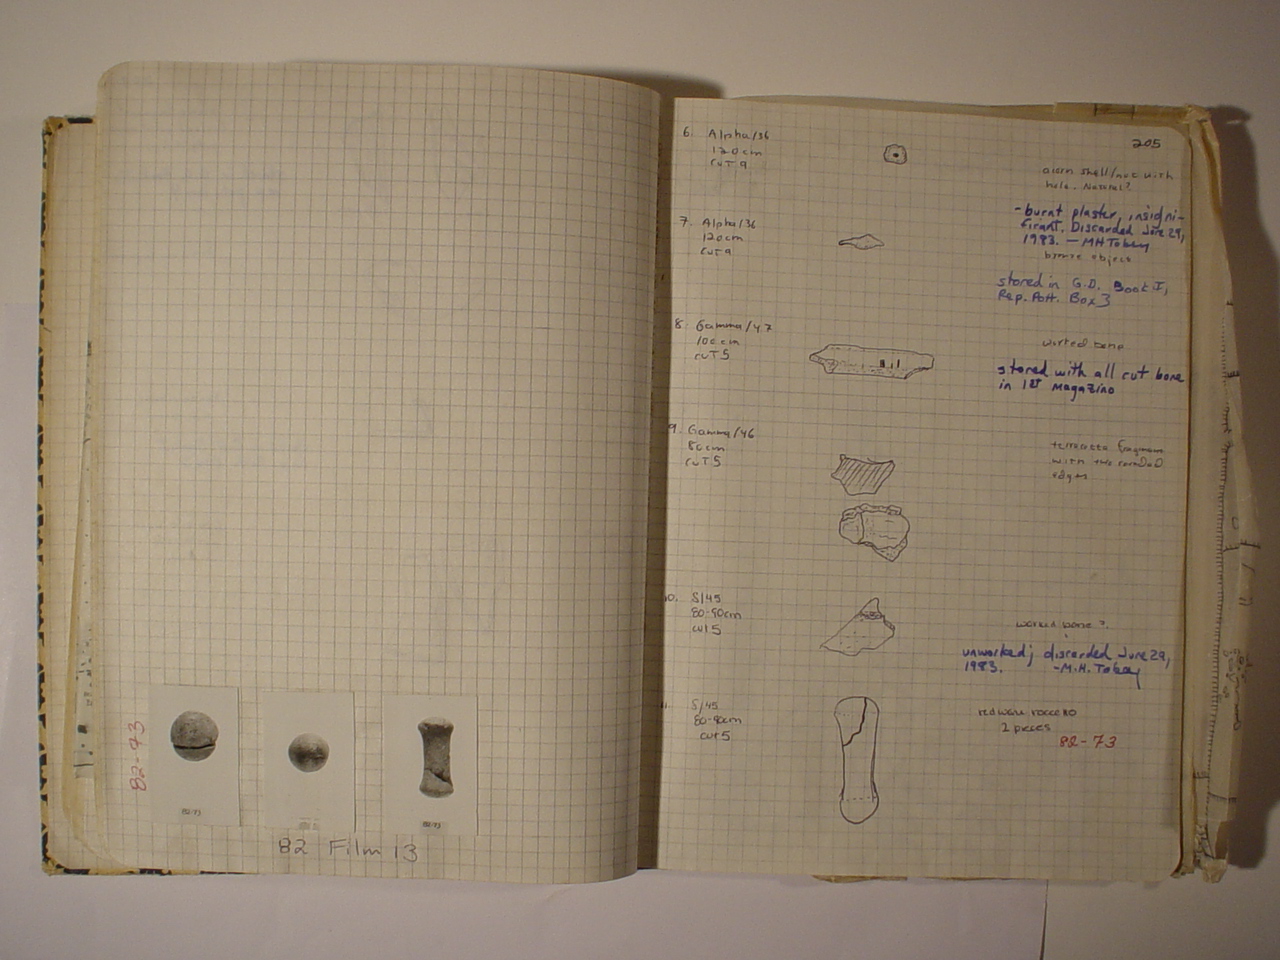 82-73
82/73
82/73
82 Film 13
205
6. Alpha/36
120cm
cuT 9
acorn shell/nut with
hole. Natural?
- burnt plaster, insigni-
ficant. Discarded June 29,
1983. — MH Tobey
7. Alpha/36
120cm
cuT 9
bronze object
stored in G.D. Book I,
Rep. Pott. Box 3
8. Gamma/47
100cm
cuT 5
worked bone
stored with all cut bone
in 1st magazino
9. Gamma/46
80cm
cuT 5
terracotta fragment
with two rounded
edges
10. S/45
80-90cm
cut 5
worked bone?
unworked; discarded June 29,
1983. -M.H. Tobey
11. S/45
80-90cm
cut 5
redware rocchetto
2 pieces
82-73